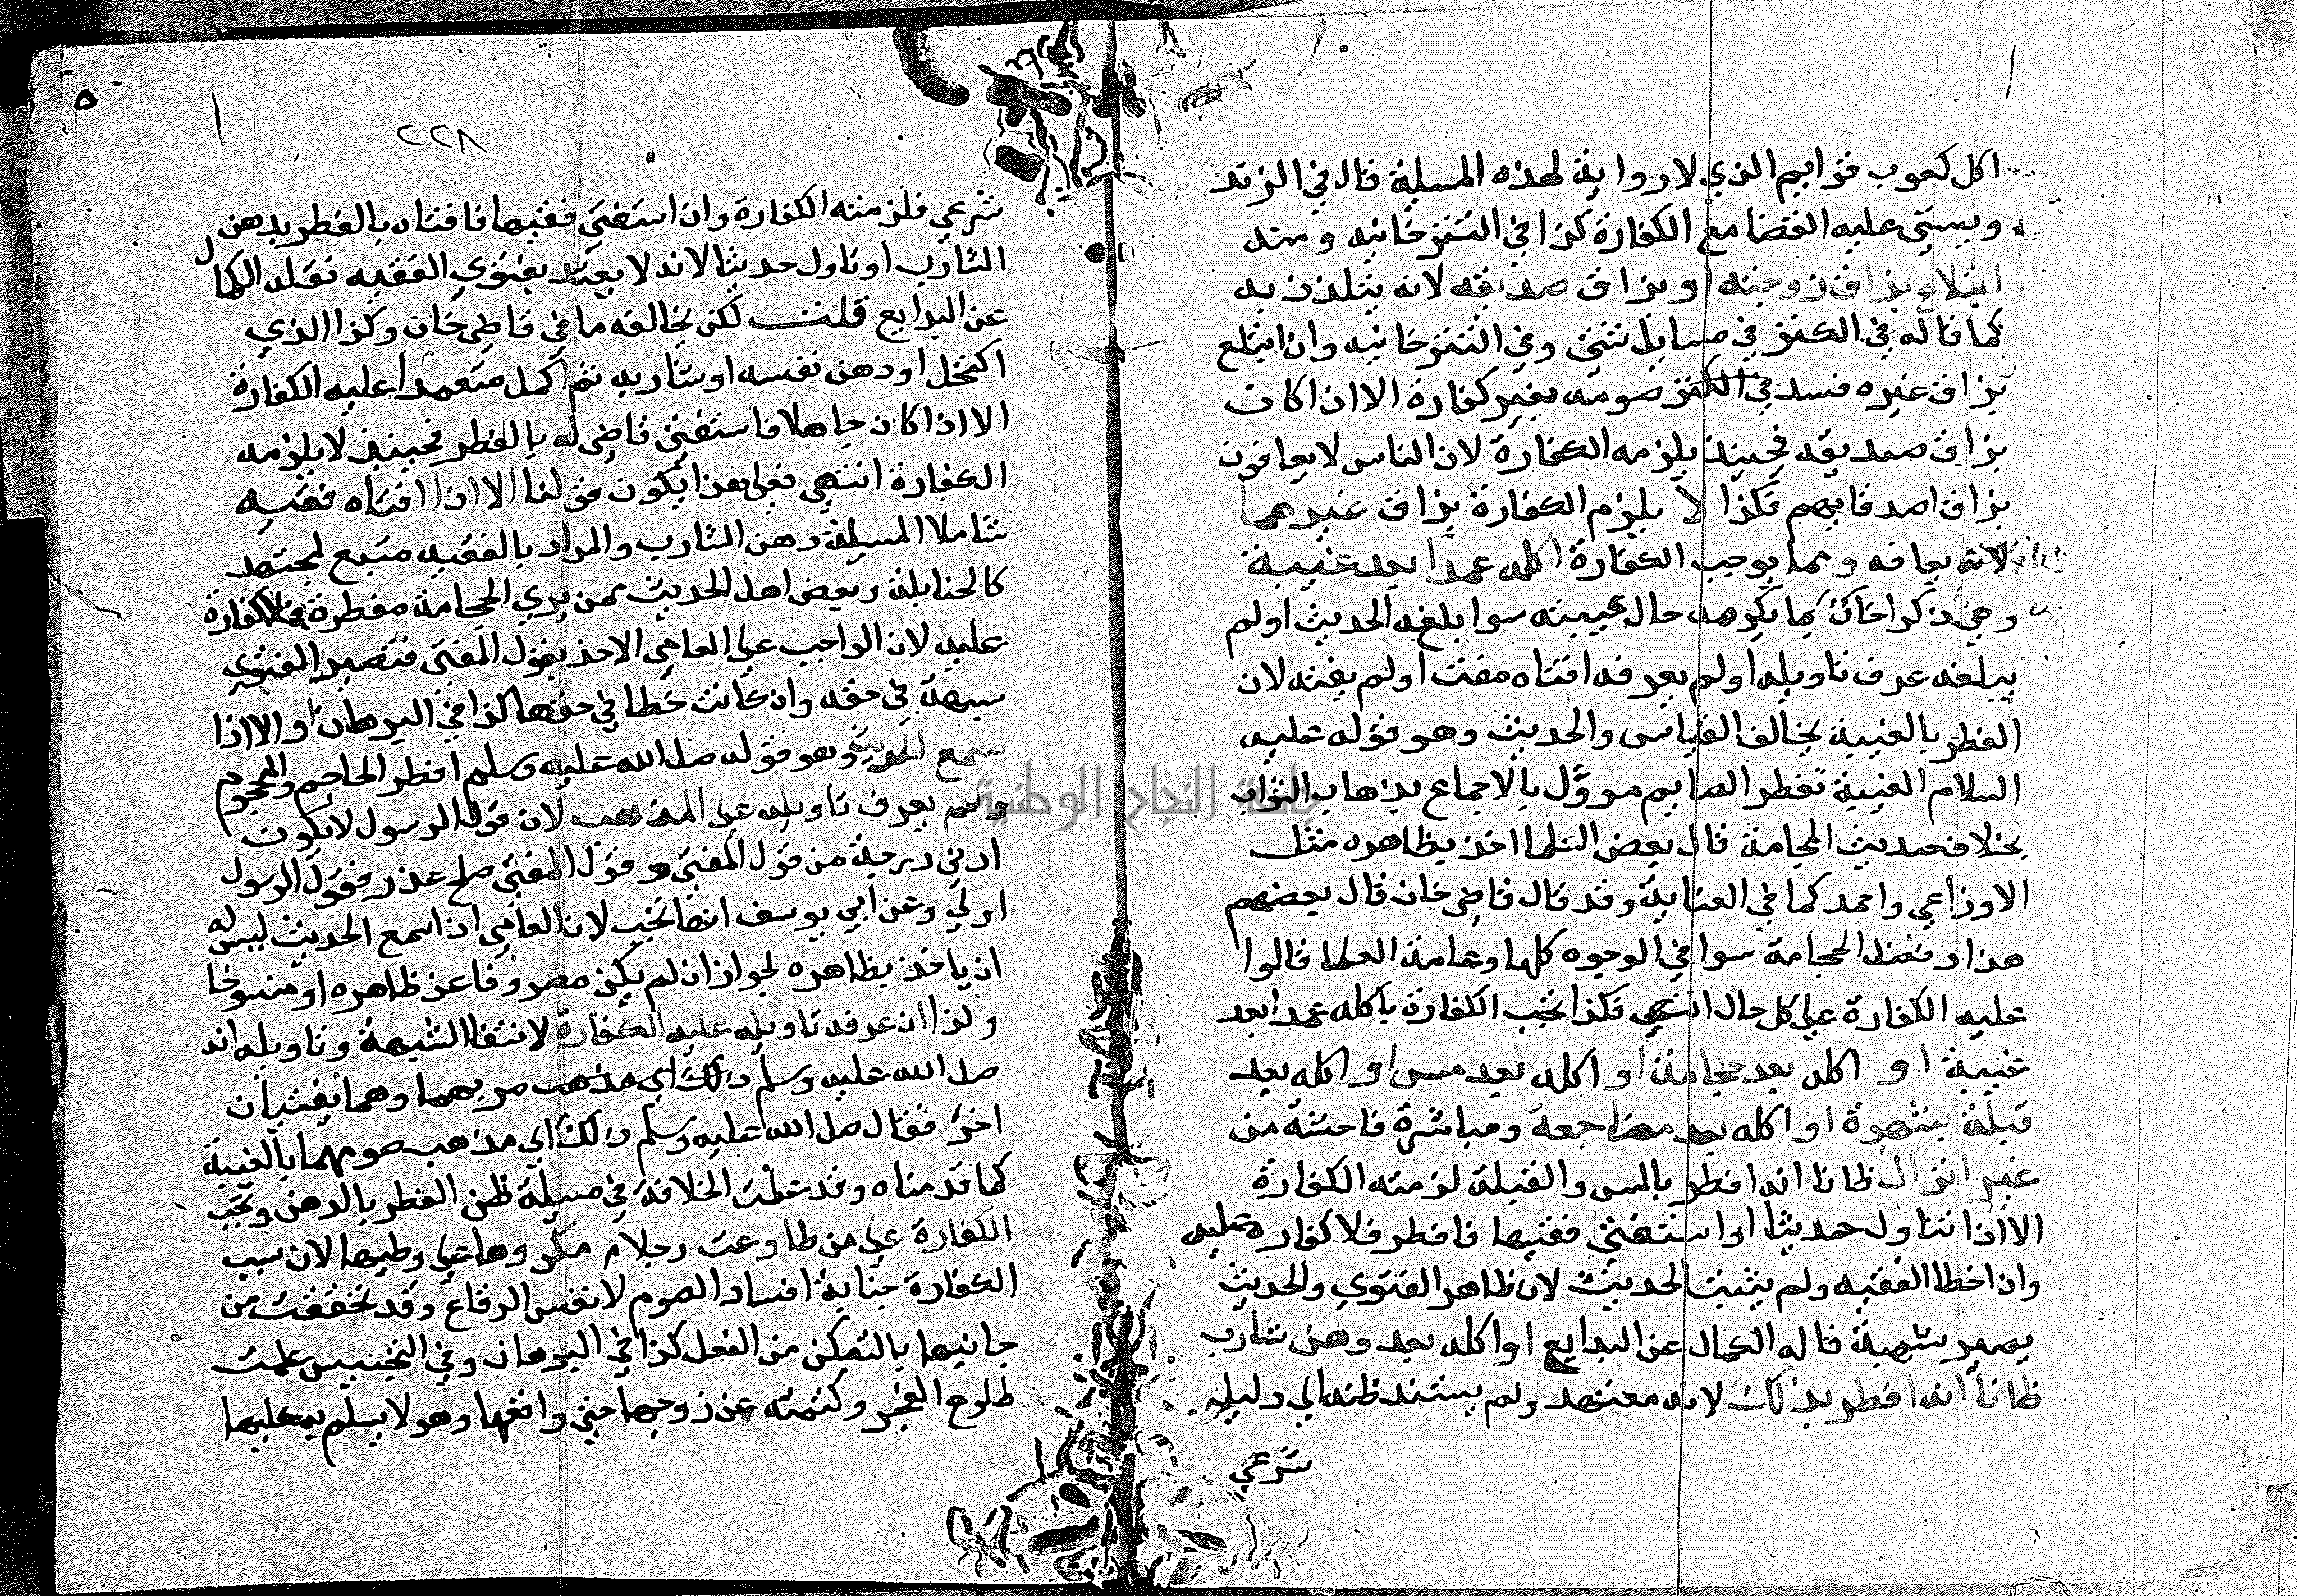 اكل كعوب قوايم الذي لا رواية لهذه المسيلة قال في الزند
ويستى عليه القضا مع الكفارة كذا في التترخانيه ومنه
ابتلاع بزاق زوجته او بزاق صديقه لانه يتلذذ به
كما قاله في الكنز في مسايل شتى وفي التترخانيه وان ابتلع
بزاق غيره فسد في الكنز صومه بغير كفارة الا اذا كان
بزاق صديقه فحينيذ يلزمه الكفارة لان الناس لا يعافون
بزاق اصدقايهم فكذا لا يلزم الكفارة بزاق غيرهما
لانه يعافه ومما يوجب الكفارة اكله عمدا بعد غيبة
وهي ذكر اخاك بما يكرهه حال غيبته سوا بلغه الحديث او لم
يبلغه عرف تاويله او لم يعرفه افتاه مفت او لم يفته لان
الفطر بالغيبة يخالف القياس والحديث وهو قوله عليه
السلام الغيبة تفطر الصايم موول بالاجماع بذهاب الثواب
بخلاف حديث الحجامة قال بعض العلما اخذ بظاهره مثل
الاوزاعي واحمد كما في العناية وقد قال قاضي خان قال بعضهم
هذا وفصل الحجامة سوا في الوجوه كلها وعامة العلما قالوا
عليه الكفارة على كل حال انتهى فكذا تجب الكفارة باكله عمدا بعد
غيبة او اكله بعد حجامة او اكله بعد مس او اكله بعد
قبلة بشهوة او اكله بعد مضاجعة ومباشرة فاحشة من
غير انزال ظانا انه افطر بالمس والقبلة لزمته الكفارة
الا اذا تناول حديثا او استفتى فقيها فافطر فلا كفارة عليه
وان اخطا الفقيه ولم يثبت الحديث لان ظاهر الفتوي والحديث
يصير شبهة قاله الكمال عن البدايع او اكله بعد دهن شارب
ظانا انه افطر بذلك لانه معتمد ولم يستند ظنه الي دليل
شرعي
٢٢٨
٥
شرعي فلزمته الكفارة وان استفتى فقيها فافتاه بالفطر بدهن
الشارب او تاول حديثا لانه لا يعتد بفتوي الفقيه نقله الكمال
عن البدايع قلت لكن يخالفه ما في قاضي خان وكذا الذي
اكتحل او دهن نفسه او شاربه ثم اكل متعمدا عليه الكفارة
الا اذا كان جاهلا فاستفتى فافتي له بالفطر فحينيذ لا يلزمه
الكفارة انتهي فعلى هذا يكون قولنا الا اذا افتاه فقيه
شاملا المسيلة دهن الشارب والمراد بالفقيه متبع لمجتهد
كالحنابلة وبعض اهل الحديث ممن يري الحجامة مفطرة فلا كفارة
عليه لان الواجب علي العامي الاخذ بقول المفتي فتصير الفتوي
شبهة في حقه وان كانت خطا في حقها كذا في البرهان او الا اذا
سمع الحديث وهو قوله صلى الله عليه وسلم افطر الحاجم والمحجوم
ولم يعرف تاويله علي المذهب لان قول الرسول لا يكون
ادنى درجة من قول المفتي وقول المفتي صلح عذر فقول الرسول
اولي وعن ابي يوسف انها تجب لان العامي اذا سمع الحديث ليس له
ان ياخذ بظاهره لجواز ان لم يكن مصروفا عن ظاهره او منسوخا
ولذا ان عرف تاويله عليه الكفارة لانتفا الشبهة وتاويله انه
صلى الله عليه وسلم مر بهما وهما يغتبان
اخر فقال صلى الله عليه وسلم ذلك اي مذهب صومهما بالغيبة
كما قدمناه وقد علمت الخلافة في مسيلة ظن الفطر بالدهن وتجب
الكفارة علي من طاوعت رجلا مكرها على وطيها لان سبب
الكفارة جناية افساد الصوم لا نفس الوقاع وقد تحققت من
جانبها بالتمكن من الفعل كذا في البرهان وفي التجنيس علمت
طلوع الفجر وكتمته عن زوجها حتى واقعها وهو لا يعلم عليها
جامعة النجاح الوطنية